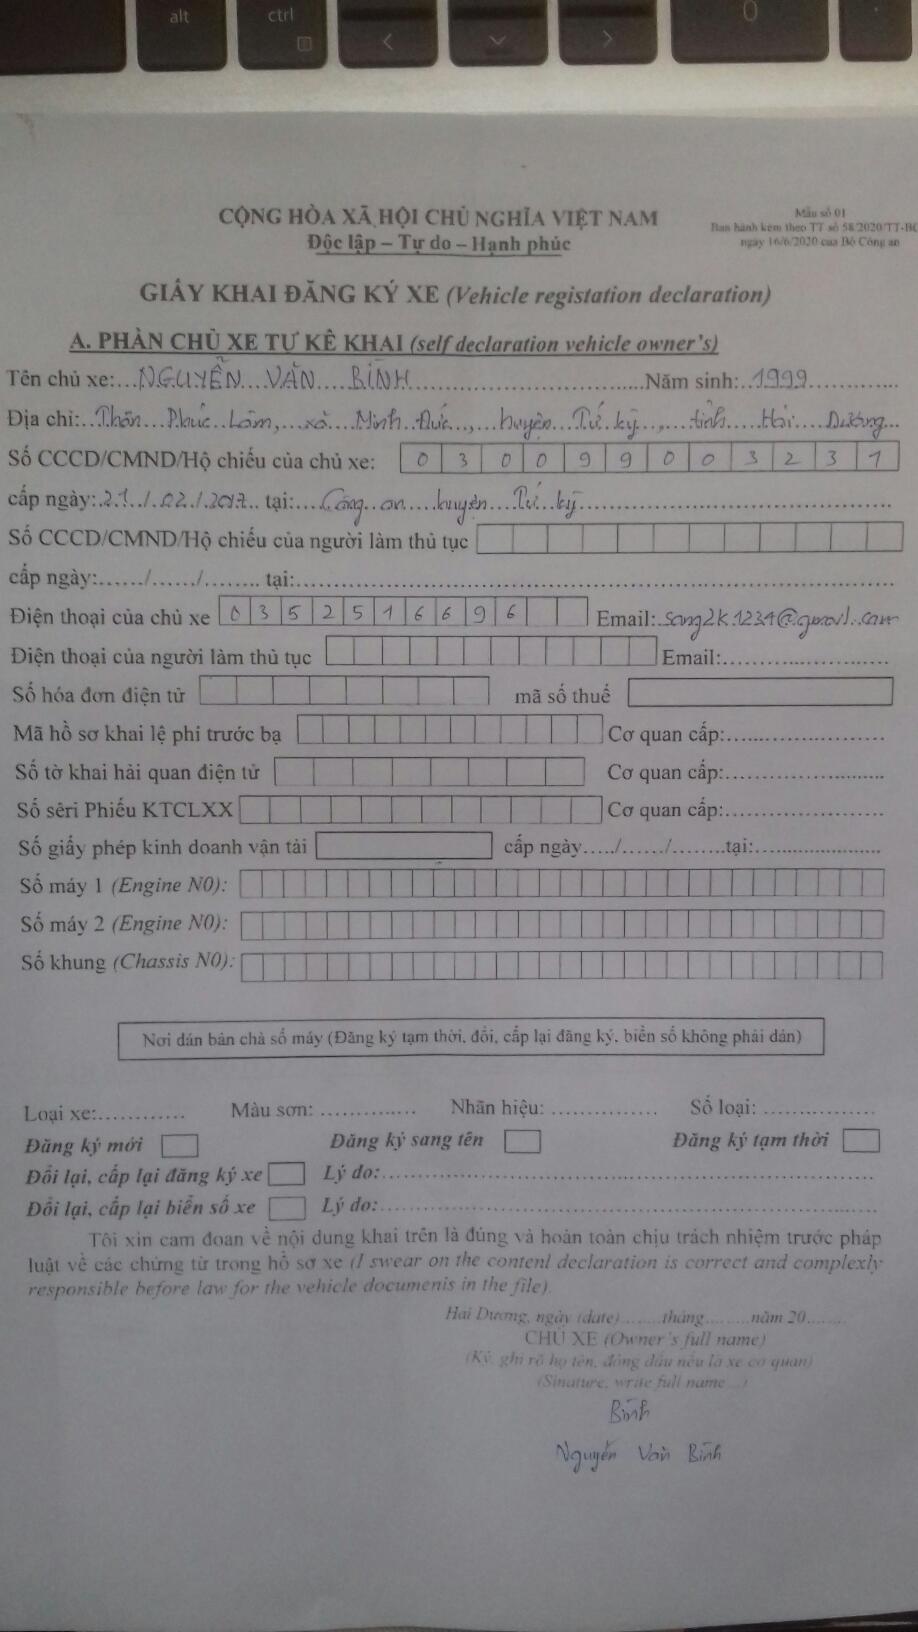 alt ctrl 0
CỘNG HÒA XÃ HỘI CHỦ NGHĨA VIỆT NAM
Độc lập – Tự do – Hạnh phúc
Mẫu số 01
Ban hành kèm theo TT số 58/2020/TT-BC
ngày 16/6/2020 của Bộ Công an
GIẤY KHAI ĐĂNG KÝ XE (Vehicle registation declaration)
A. PHẦN CHỦ XE TỰ KÊ KHAI (self declaration vehicle owner's)
Tên chủ xe: NGUYỄN VĂN BÌNH Năm sinh: 1999
Địa chỉ: Thôn Phúc Lâm, xã Minh Đức, huyện Tứ kỳ, tỉnh Hải Dương
Số CCCD/CMND/Hộ chiếu của chủ xe: 030099003231
cấp ngày: 21/02/2017 tại: Công an huyện Tứ kỳ
Số CCCD/CMND/Hộ chiếu của người làm thủ tục
cấp ngày:....../....../........ tại:
Điện thoại của chủ xe 0352516696 Email: sang2k1234@gmail.com
Điện thoại của người làm thủ tục Email:
Số hóa đơn điện tử mã số thuế
Mã hồ sơ khai lệ phí trước bạ Cơ quan cấp:
Số tờ khai hải quan điện tử Cơ quan cấp:
Số sêri Phiếu KTCLXX Cơ quan cấp:
Số giấy phép kinh doanh vận tải cấp ngày...../....../........tại:
Số máy 1 (Engine N0):
Số máy 2 (Engine N0):
Số khung (Chassis N0):
Nơi dán bản chà số máy (Đăng ký tạm thời, đổi, cấp lại đăng ký, biển số không phải dán)
Loại xe: Màu sơn: Nhãn hiệu: Số loại:
Đăng ký mới Đăng ký sang tên Đăng ký tạm thời
Đổi lại, cấp lại đăng ký xe Lý do:
Đổi lại, cấp lại biển số xe Lý do:
Tôi xin cam đoan về nội dung khai trên là đúng và hoàn toàn chịu trách nhiệm trước pháp
luật về các chứng từ trong hồ sơ xe (I swear on the contenl declaration is correct and complexly
responsible before law for the vehicle documenis in the file).
Hai Dương, ngày (date)........tháng.........năm 20........
CHỦ XE (Owner's full name)
(Ký, ghi rõ họ tên, đóng dấu nếu là xe cơ quan)
(Sinature, write full name ...)
Bình
Nguyễn Văn Bình